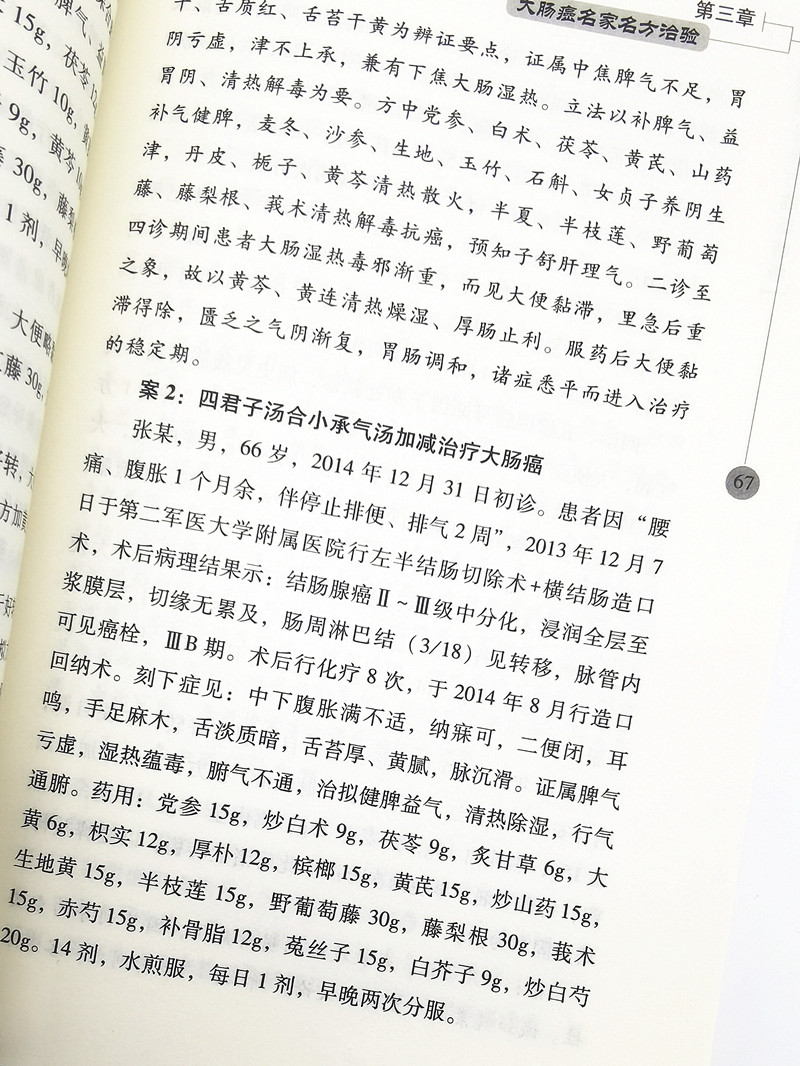 第三章
大肠癌名家名方治验
干、舌质红、舌苔干黄为辨证要点，证属中焦脾气不足，胃
阴亏虚，津不上承，兼有下焦大肠湿热。立法以补脾气、益
胃阴、清热解毒为要。方中党参、白术、茯苓、黄芪、山药
补气健脾，麦冬、沙参、生地、玉竹、石斛、女贞子养阴生
津，丹皮、栀子、黄芩清热散火，半夏、半枝莲、野葡萄
藤、藤梨根、莪术清热解毒抗癌，预知子舒肝理气。二诊至
四诊期间患者大肠湿热毒邪渐重，而见大便黏滞，里急后重
之象，故以黄芩、黄连清热燥湿、厚肠止利。服药后大便黏
滞得除，匮乏之气阴渐复，胃肠调和，诸症悉平而进入治疗
的稳定期。
案 2：四君子汤合小承气汤加减治疗大肠癌
张某，男，66 岁，2014 年 12 月 31 日初诊。患者因“腰
痛、腹胀 1 个月余，伴停止排便、排气 2 周”，2013 年 12 月 7
日于第二军医大学附属医院行左半结肠切除术+横结肠造口
术，术后病理结果示：结肠腺癌Ⅱ～Ⅲ级中分化，浸润全层至
浆膜层，切缘无累及，肠周淋巴结（3/18）见转移，脉管内
可见癌栓，ⅢB 期。术后行化疗 8 次，于 2014 年 8 月行造口
回纳术。刻下症见：中下腹胀满不适，纳寐可，二便闭，耳
鸣，手足麻木，舌淡质暗，舌苔厚、黄腻，脉沉滑。证属脾气
亏虚，湿热蕴毒，腑气不通，治拟健脾益气，清热除湿，行气
通腑。药用：党参 15g，炒白术 9g，茯苓 9g，炙甘草 6g，大
黄 6g，枳实 12g，厚朴 12g，槟榔 15g，黄芪 15g，炒山药 15g，
生地黄 15g，半枝莲 15g，野葡萄藤 30g，藤梨根 30g，莪术
15g，赤芍 15g，补骨脂 12g，菟丝子 15g，白芥子 9g，炒白芍
20g。14 剂，水煎服，每日 1 剂，早晚两次分服。
67